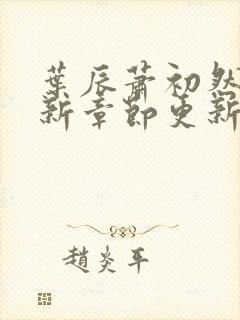 葉辰蕭初然
新章節更新
趙炎平